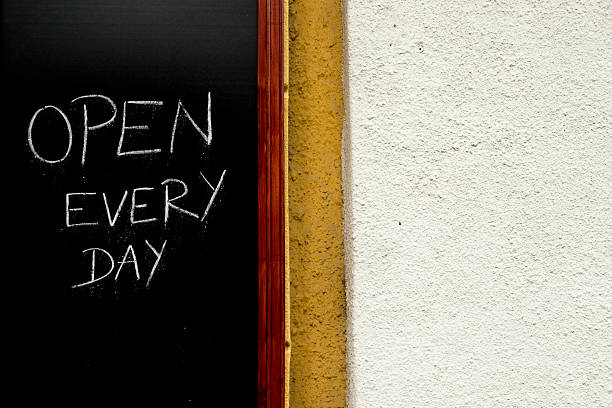 OPEN
EVERY
DAY